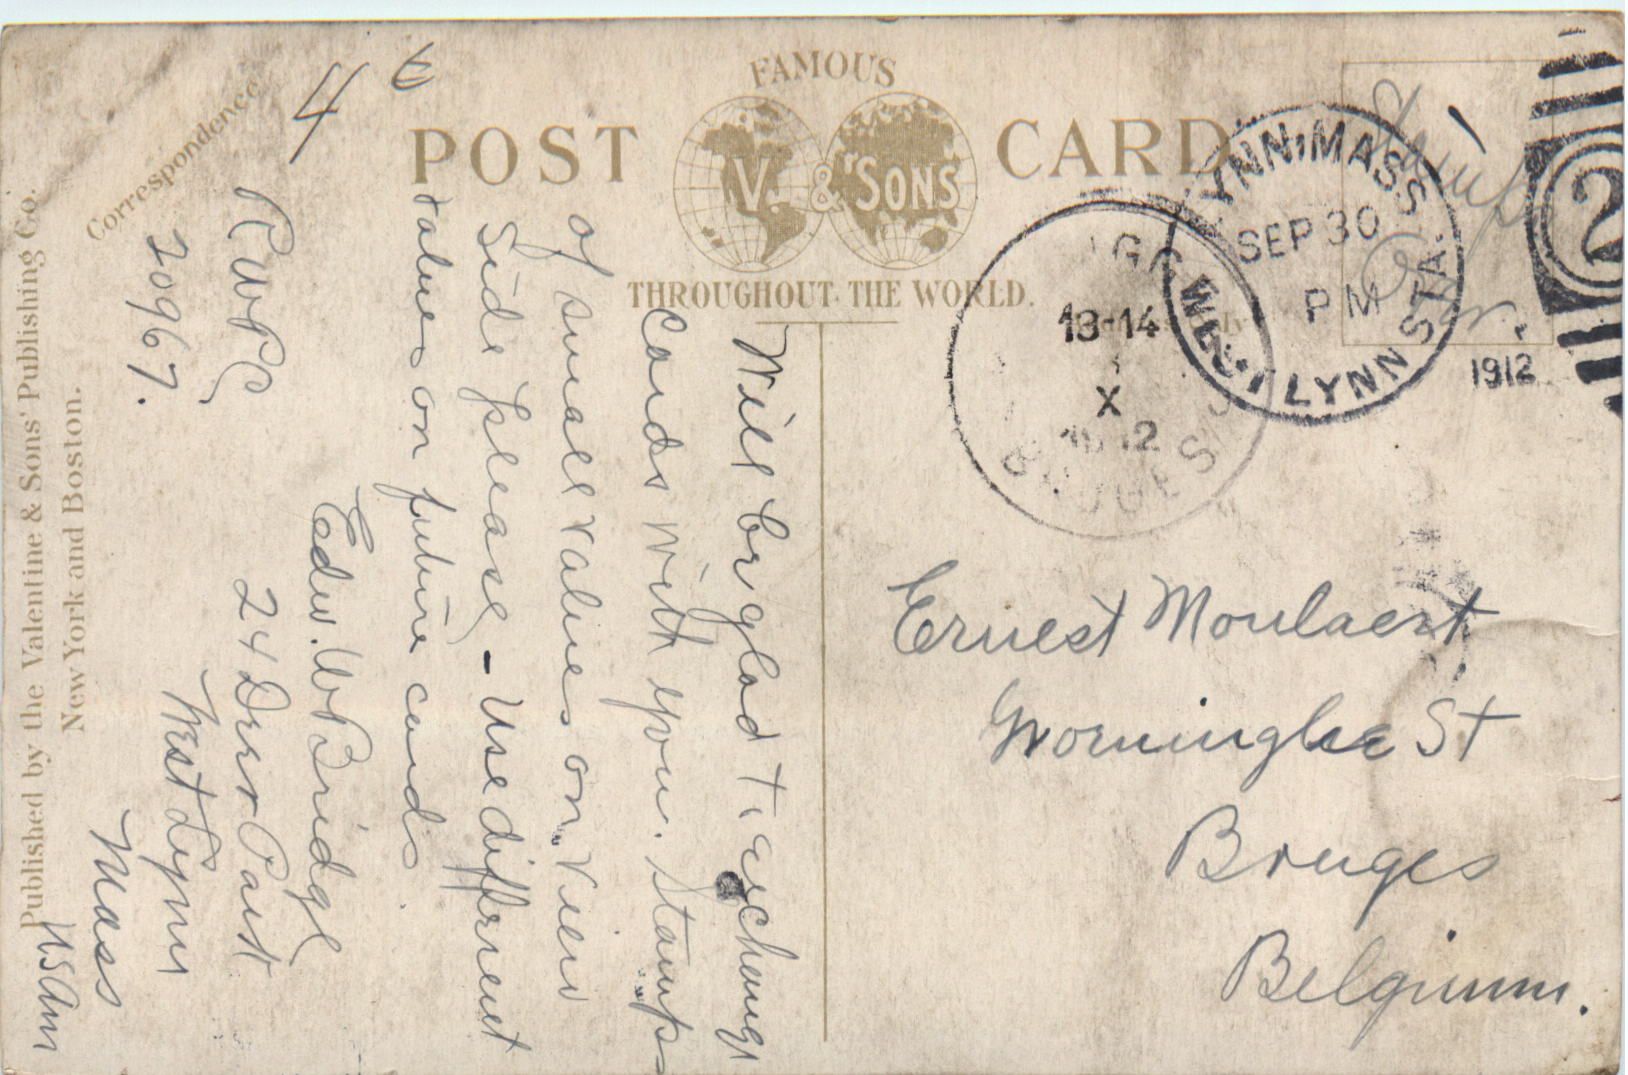 FAMOUS
POST CARD
V. & SONS
THROUGHOUT THE WORLD.
Correspondence
Published by the Valentine & Sons' Publishing Co.
New York and Boston.
4
LYNN, MASS.
SEP 30
PM
WEST LYNN STA.
1912
2
Stamp
Over
13-14
X
BRUGES
Will be glad to exchange
Cards with you. Stamps
of small values on view
side please - Use different
values on future cards.
Edw. W Bridge
24
Park
West Lynn
Mass
RWPC
20967.
Ernest Moulaert
St
Bruges
Belgium.